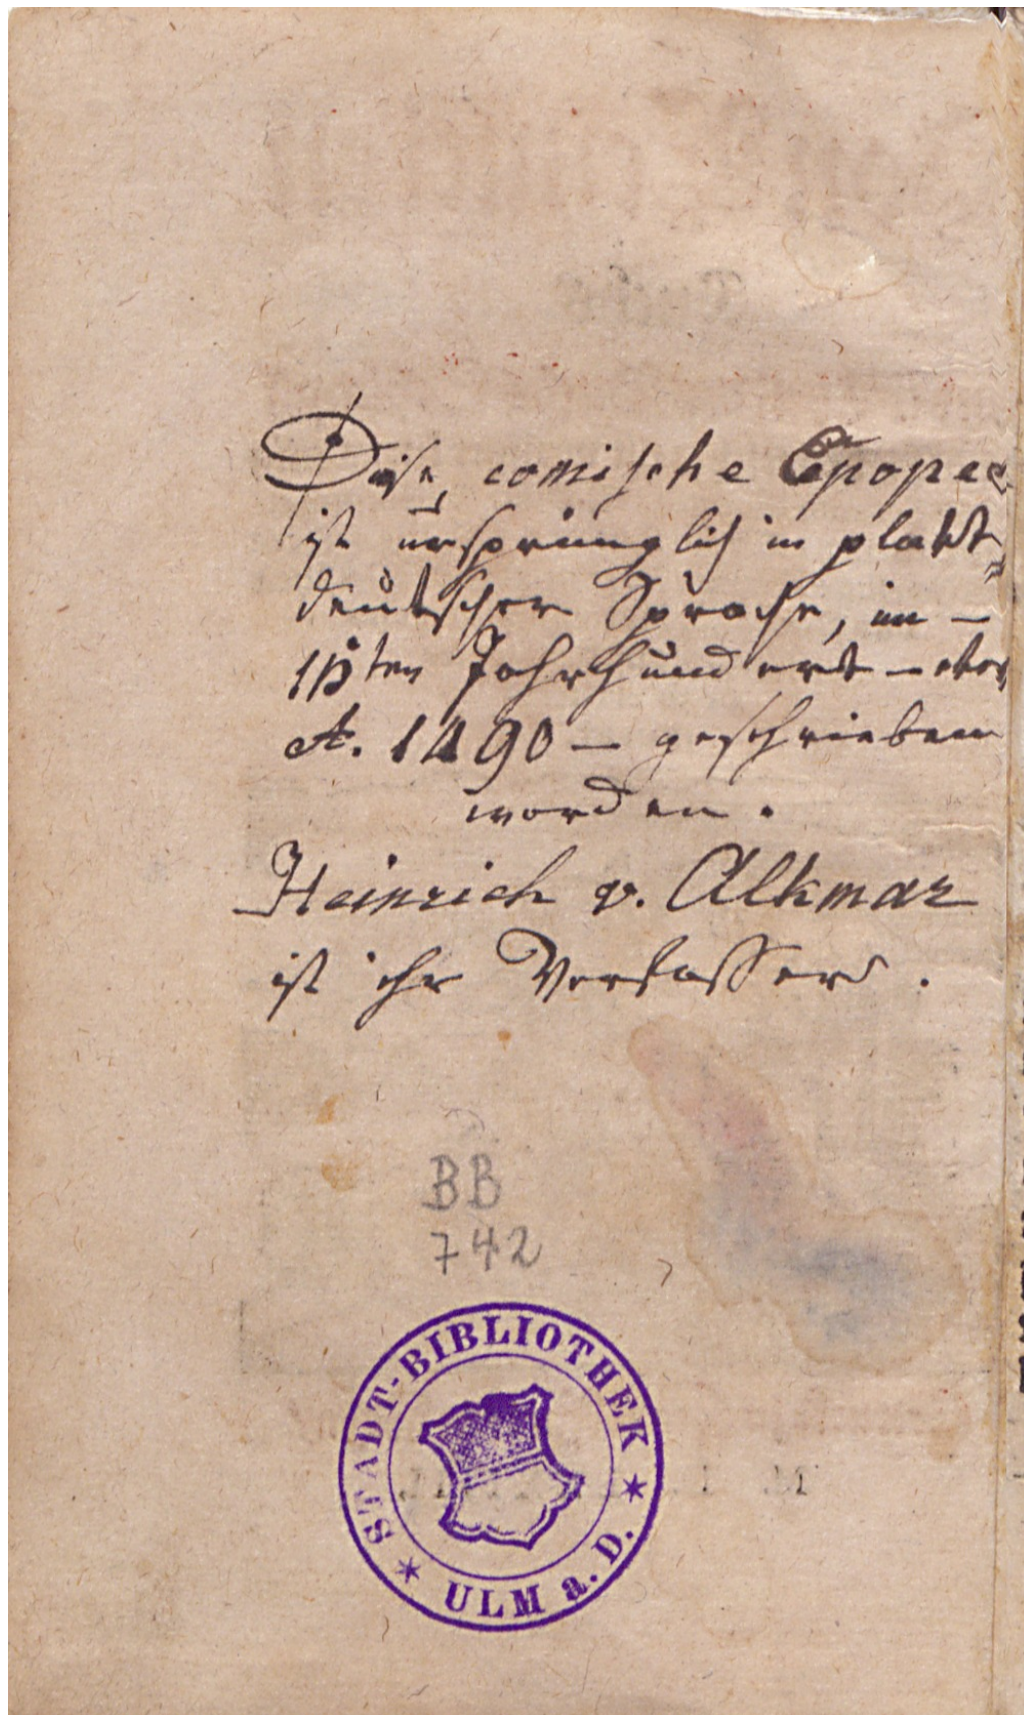 Diese comische Epopee
ist ursprünglich in platt=
deutscher Sprache, im –
15ten Jahrhundert –
A. 1490 – geschrieben
worden.
Heinrich v. Alkmar
ist ihr Verfasser.
BB
742
STADT-BIBLIOTHEK
* ULM a. D. *